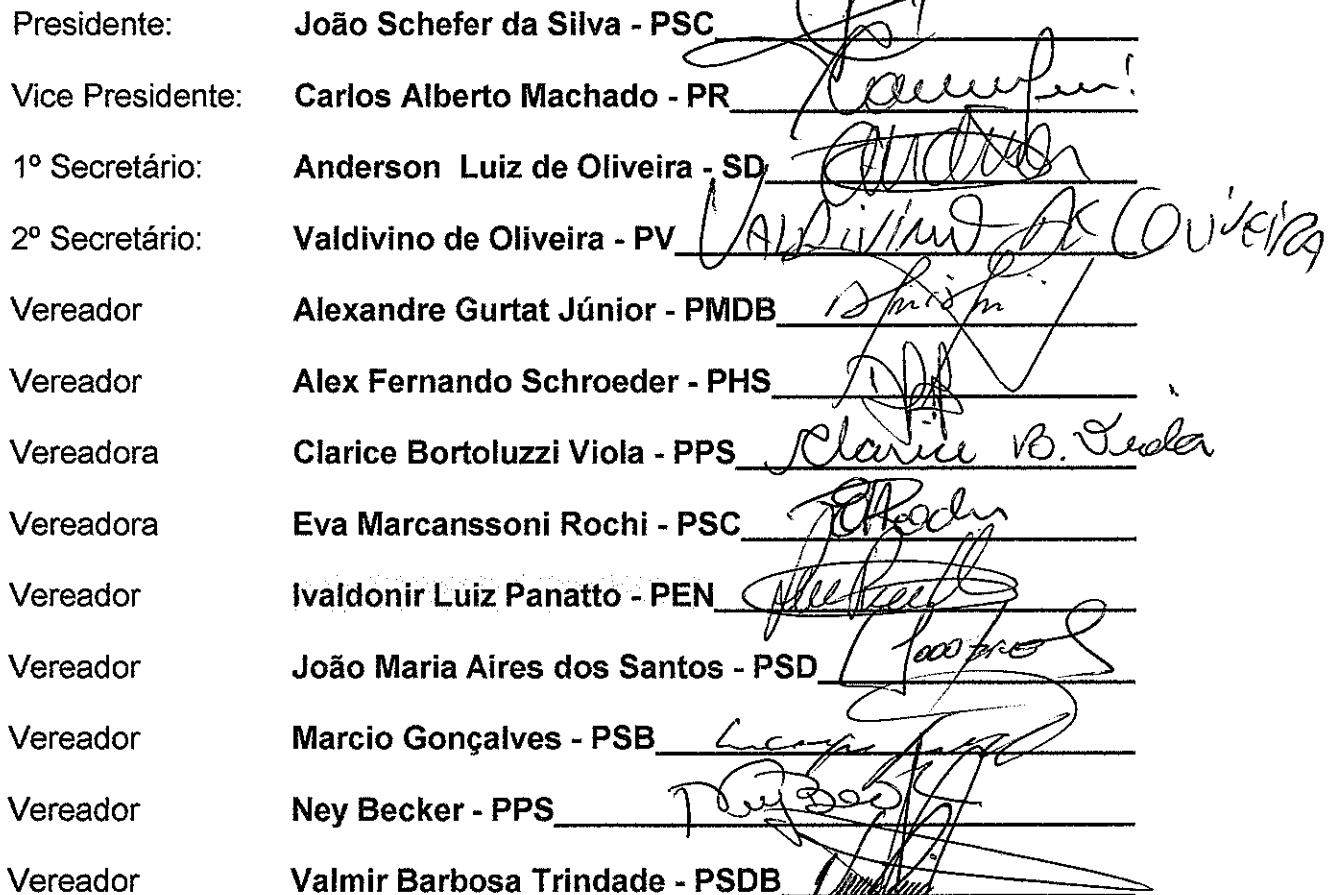 Presidente: João Schefer da Silva - PSC
Vice Presidente: Carlos Alberto Machado - PR
1º Secretário: Anderson Luiz de Oliveira - SD
2º Secretário: Valdivino de Oliveira - PV VALDIVINO DE OLIVEIRA
Vereador Alexandre Gurtat Júnior - PMDB
Vereador Alex Fernando Schroeder - PHS
Vereadora Clarice Bortoluzzi Viola - PPS Clarice B. Viola
Vereadora Eva Marcanssoni Rochi - PSC
Vereador Ivaldonir Luiz Panatto - PEN
Vereador João Maria Aires dos Santos - PSD
Vereador Marcio Gonçalves - PSB
Vereador Ney Becker - PPS
Vereador Valmir Barbosa Trindade - PSDB